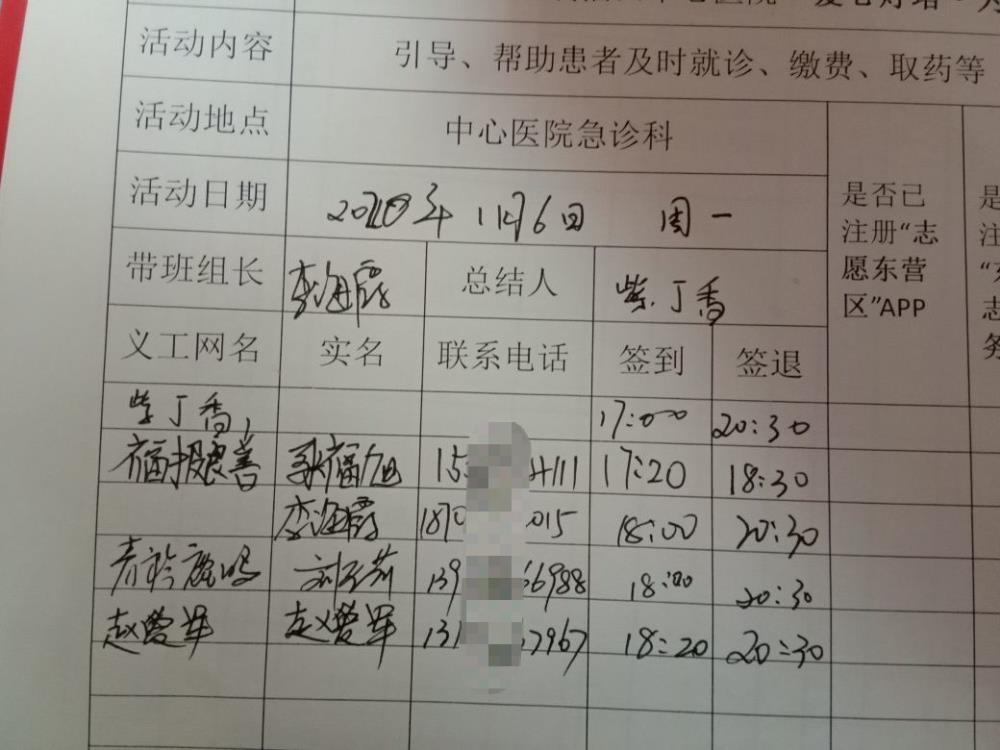 中心医院
活动内容 引导、帮助患者及时就诊、缴费、取药等
活动地点 中心医院急诊科
活动日期 2020年1月6日 周一
是否已注册“志愿东营区”APP
带班组长 李海霞 总结人 紫丁香
义工网名 实名 联系电话 签到 签退
紫丁香, 17:00 20:30
福报良善 福旭 15 4111 17:20 18:30
李海霞 1870 015 18:00 20:30
青衿鹿鸣 刘 139 66988 18:00 20:30
赵雪军 赵雪军 131 57967 18:20 20:30